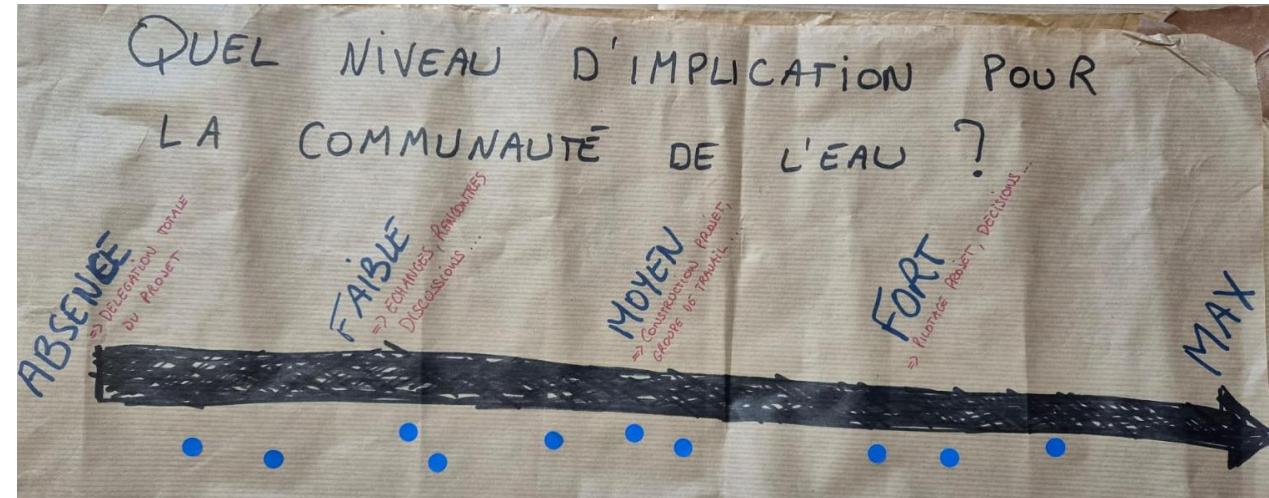 QUEL NIVEAU D'IMPLICATION POUR
LA COMMUNAUTÉ DE L'EAU ?
ABSENCE
=> DÉLÉGATION TOTALE
DU PROJET
FAIBLE
=> ECHANGES, RENCONTRES
DISCUSSIONS ...
MOYEN
=> CONSTRUCTION PROJET,
GROUPE DE TRAVAIL ...
FORT
=> PILOTAGE PROJET, DÉCISIONS ...
MAX